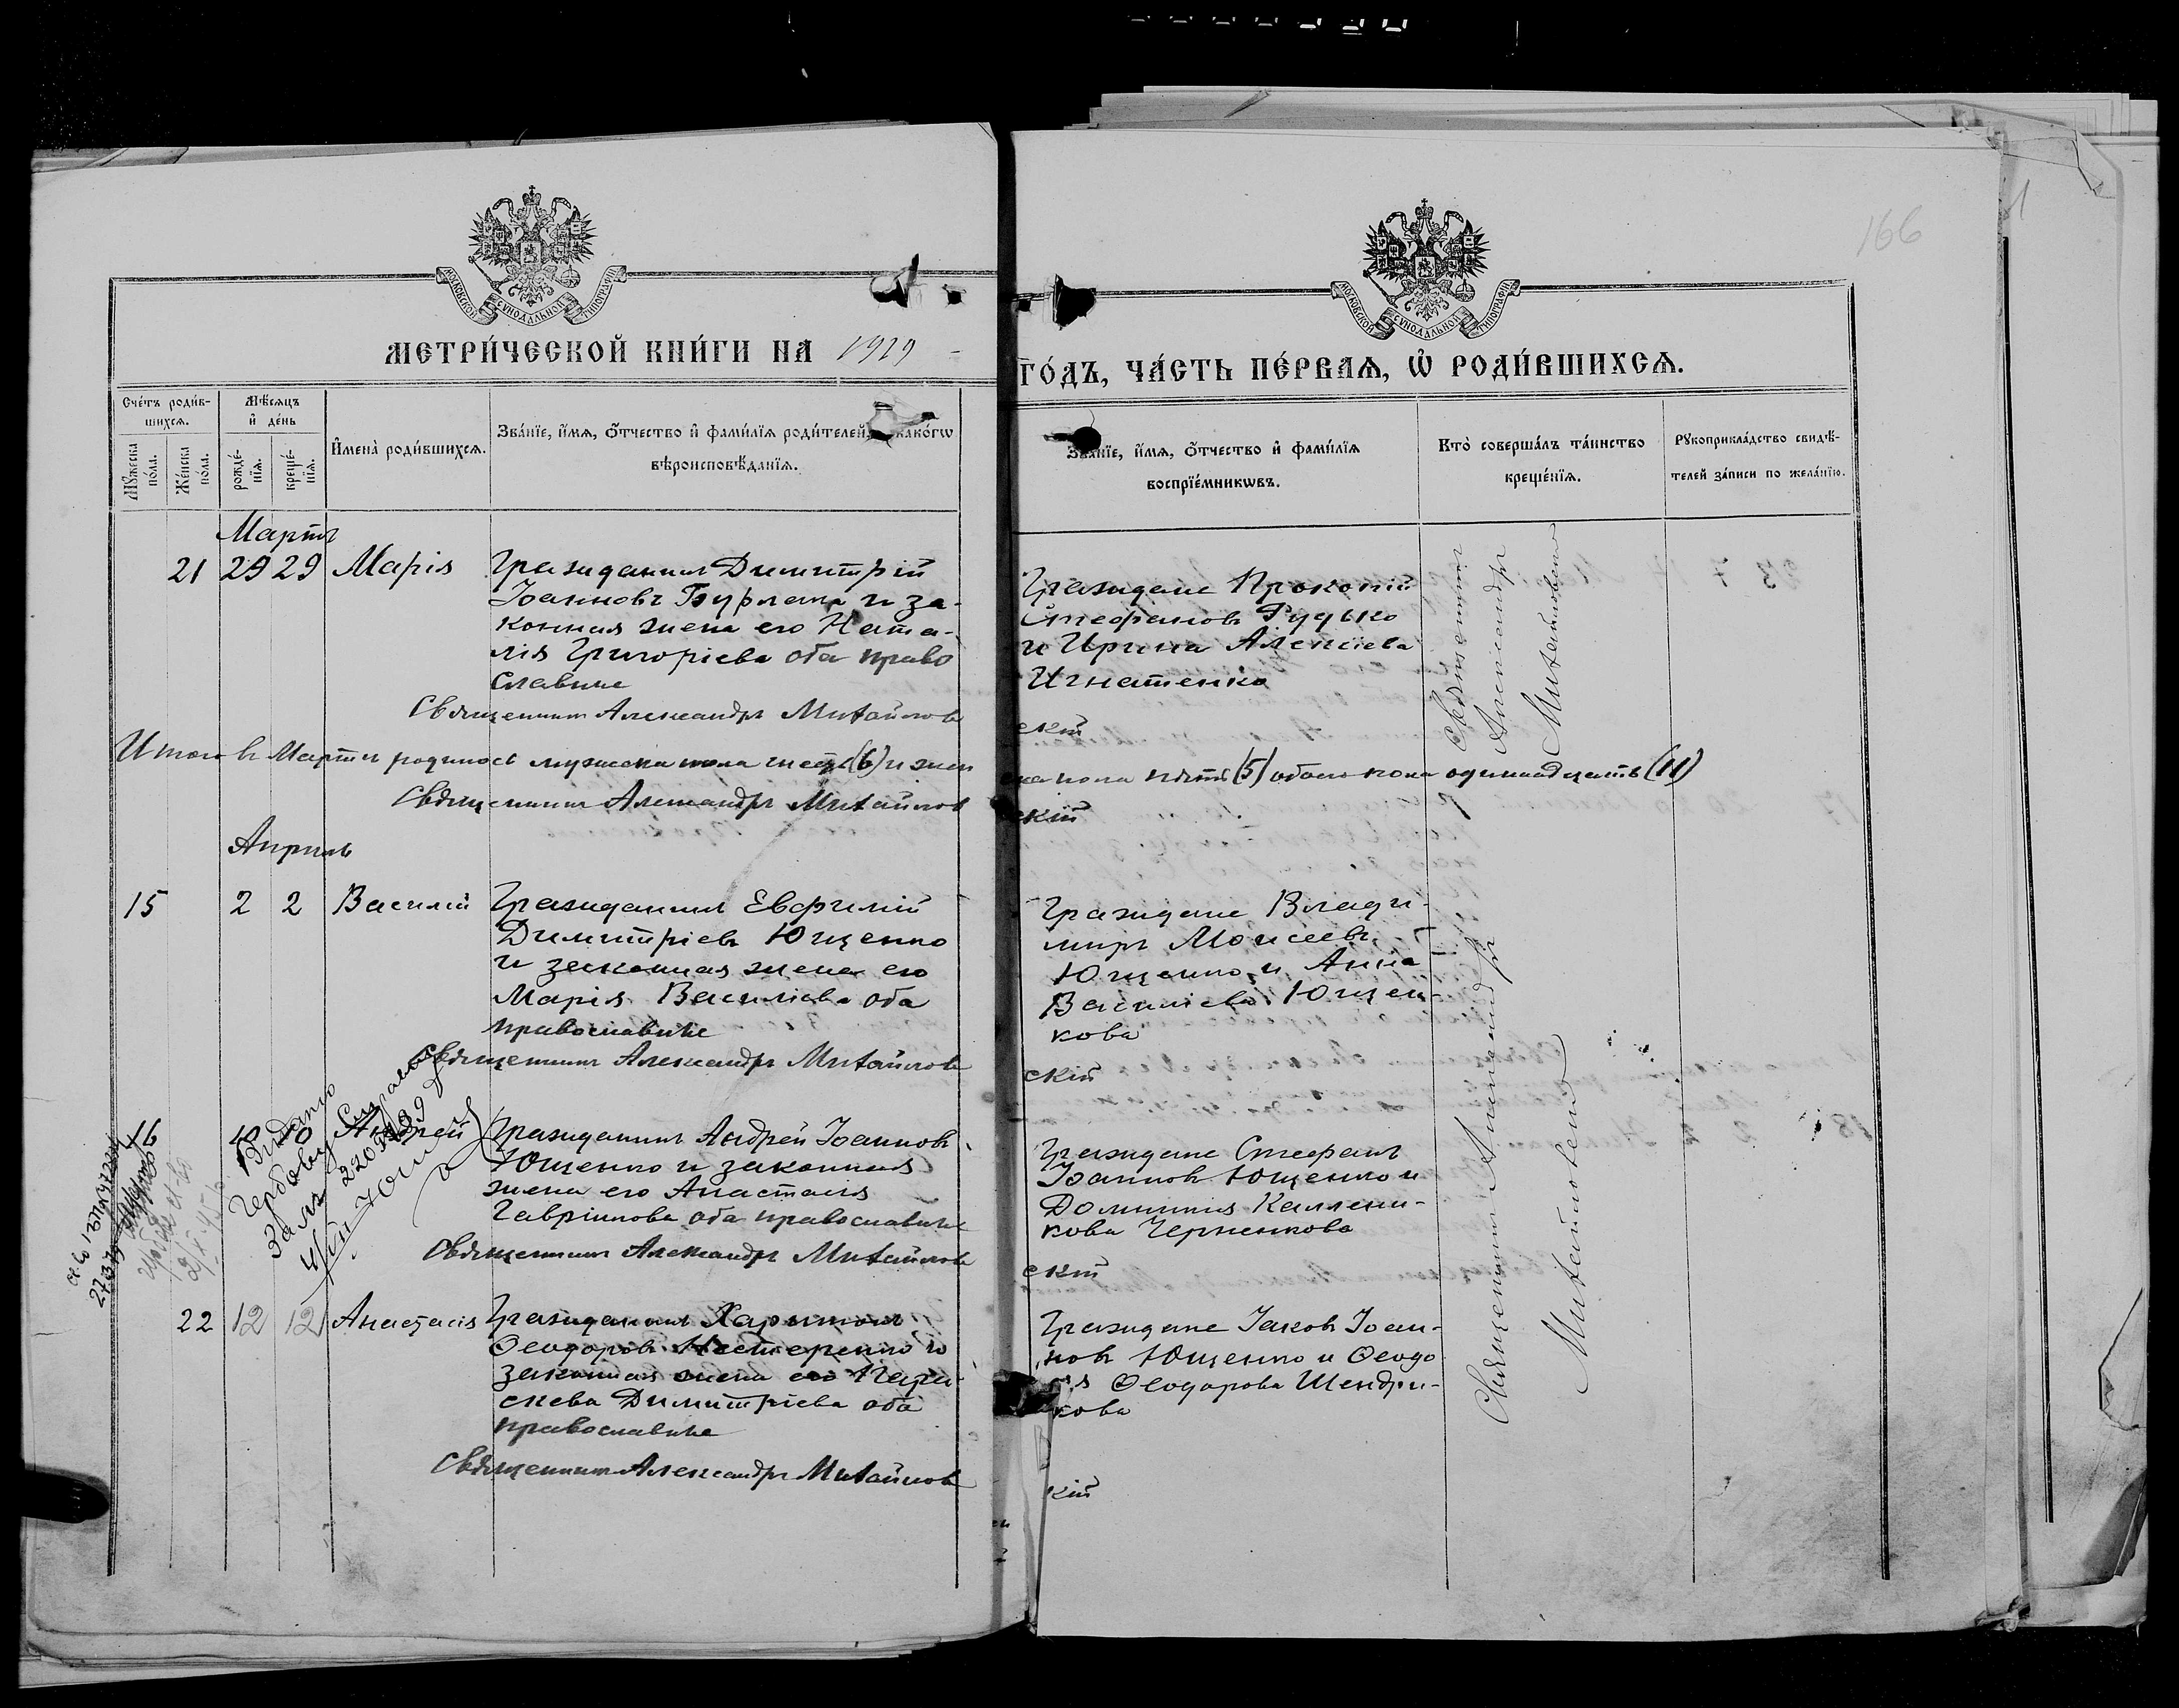 166
МОСКОВСКОЙ СѴНОДАЛЬНОЙ ТИПОГРАФІИ
МОСКОВСКОЙ СѴНОДАЛЬНОЙ ТИПОГРАФІИ
МЕТРИ́ЧЕСКОЙ КНИ́ГИ НА 1919
ГО́ДЪ, ЧА́СТЬ ПЕ́РВАѦ, Ѡ҆ РОДИ́ВШИХСѦ.
Сче́тъ роди́в-
шихсѧ.
Мѣ́сѧцъ
и҆ де́нь
Мꙋ́жеска
по́ла.
Же́нска
по́ла.
рожде́-
нїѧ.
креще́-
нїѧ.
И҆мена̀ роди́вшихсѧ.
Зва́нїе, и҆́мѧ, ѻ҆́тчество и҆ фамѝлїѧ роди́телей, како́гѡ
вѣроисповѣ́данїѧ.
Зва́нїе, и҆́мѧ, ѻ҆́тчество и҆ фами́лїѧ
воспрїе́мникѡвъ.
Кто̀ соверша́лъ та́инство
креще́нїѧ.
Рꙋкоприкла́дство свидѣ́-
телей за́писи по жела́нїю.
Мартъ
21 29 29 Марія
Гражданинъ Димитрій
Іоанновъ Бурлака и за-
конная жена его Ната-
лія Григоріева оба право
славные
Граждане Прокопій
Стефановъ Рудько
и Ирина Алексіева
Игнатенко
Священникъ Александръ Михайловскій
Священникъ
Александръ
Михайловскій
Итого въ Мартѣ родилось мужеска пола шесть (6) и женска пола пять (5) обоего пола одинадцать (11)
Священникъ Александръ Михайловскій
Апрѣль
15 2 2 Василій
Гражданинъ Евфимій
Димитріевъ Ющенко
и законная жена его
Марія Василіева оба
православные
Граждане Влади-
миръ Моисеевъ
Ющенко и Анна
Василіева Ющен-
кова
Священникъ Александръ Михайловскій
16 10 10 Андрей
Гражданинъ Андрей Іоанновъ
Ющенко и законная
жена его Анастасія
Гавріилова оба православные
Граждане Стефанъ
Іоанновъ Ющенко и
Домникія Каллени-
кова Черненкова
Священникъ Александръ Михайловскій
Видано
Гербову
За №
22 12 12 Анастасія
Гражданинъ Харитонъ
Ѳеодоровъ Нестеренко и
законная жена его Пара-
скева Димитріева оба
православные
Граждане Іаковъ Іоан-
новъ Ющенко и Ѳеодо
ія Ѳеодорова Шендри-
кова
Священникъ Александръ Михайловскій
Священникъ Александръ
Михайловскій